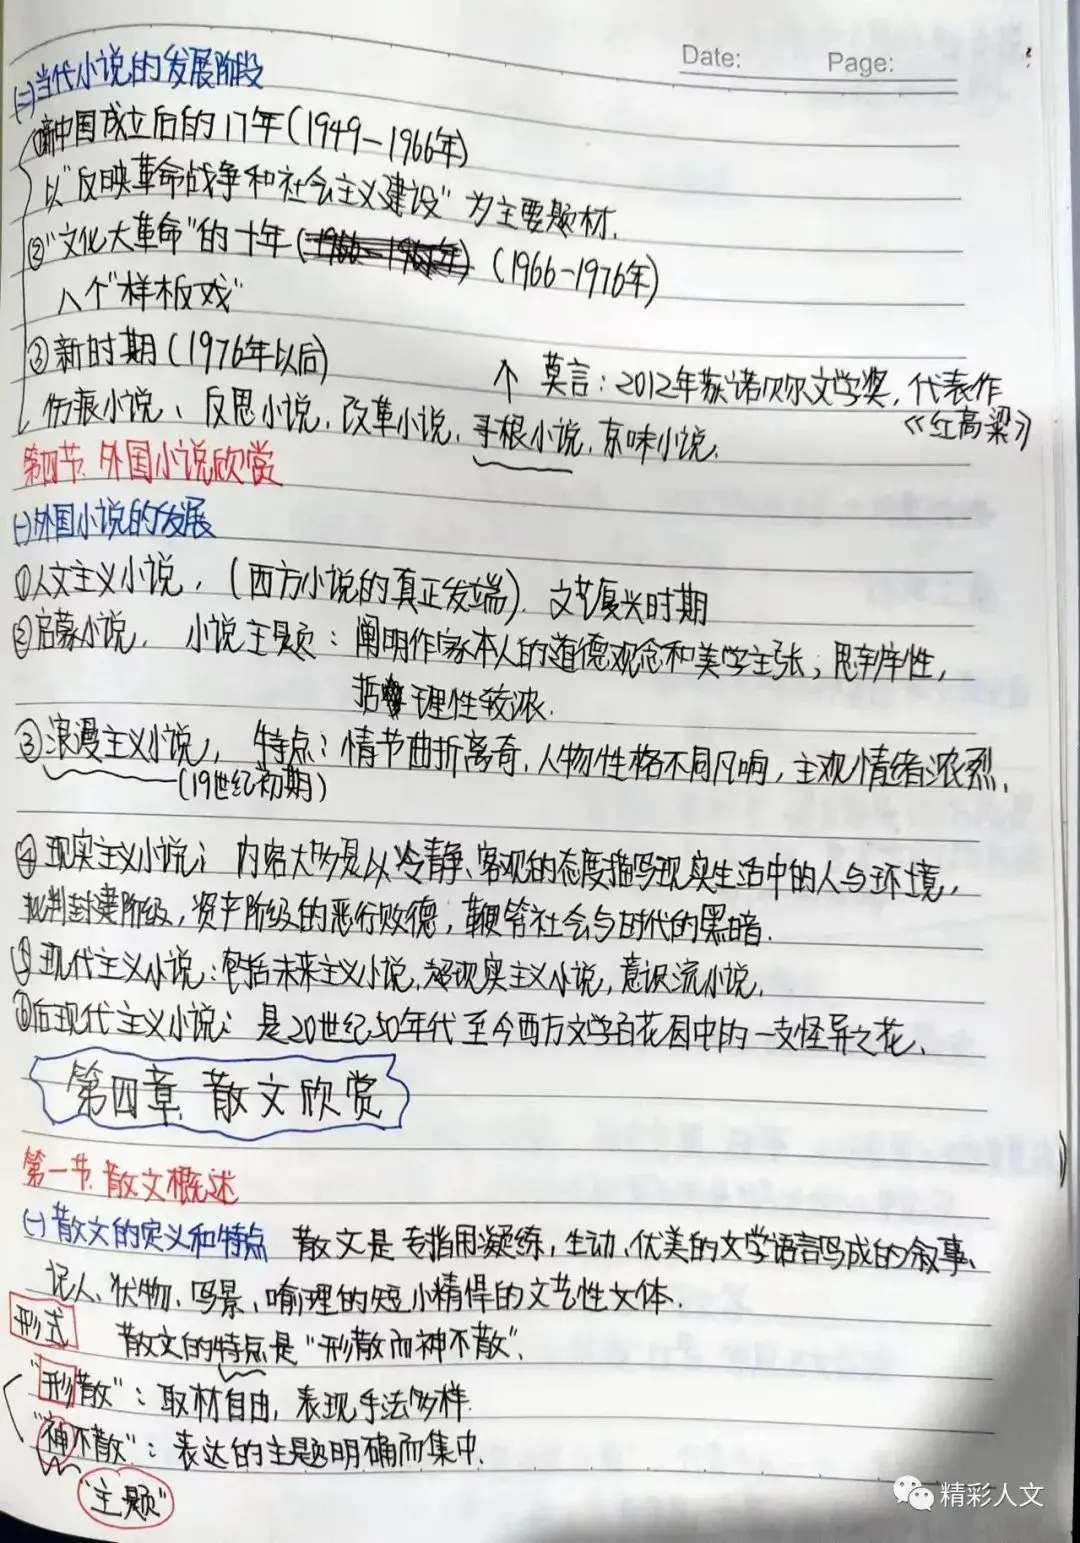 Date:
Page:
(二)当代小说的发展阶段
①新中国成立后的17年(1949-1966年)
以"反映革命战争和社会主义建设"为主要题材.
②"文化大革命"的十年 (1966-1976年)
八个"样板戏"
③新时期(1976年以后)
↑ 莫言:2012年获诺贝尔文学奖,代表作
《红高粱》
伤痕小说、反思小说,改革小说,寻根小说,京味小说.
第四节.外国小说欣赏
(一)外国小说的发展
①人文主义小说,(西方小说的真正发端).文艺复兴时期
②启蒙小说, 小说主题:阐明作家本人的道德观念和美学主张;思辨性,
哲理性较浓.
③浪漫主义小说, 特点:情节曲折离奇,人物性格不同凡响,主观情绪浓烈.
(19世纪初期)
④现实主义小说; 内容大多是以冷静、客观的态度描写现实生活中的人与环境,
批判封建阶级,资产阶级的恶行败德,鞭笞社会与时代的黑暗.
⑤现代主义小说:包括未来主义小说,超现实主义小说,意识流小说.
⑥后现代主义小说; 是20世纪50年代至今西方文学百花园中的一支怪异之花.
第四章.散文欣赏
第一节.散文概述
(一)散文的定义和特点 散文是专指用凝练,生动、优美的文学语言写成的叙事、
记人、状物、写景、喻理的短小精悍的文艺性文体.
形式
散文的特点是"形散而神不散".
"形散":取材自由,表现手法多样.
"神不散":表达的主题明确而集中.
"主题"
精彩人文